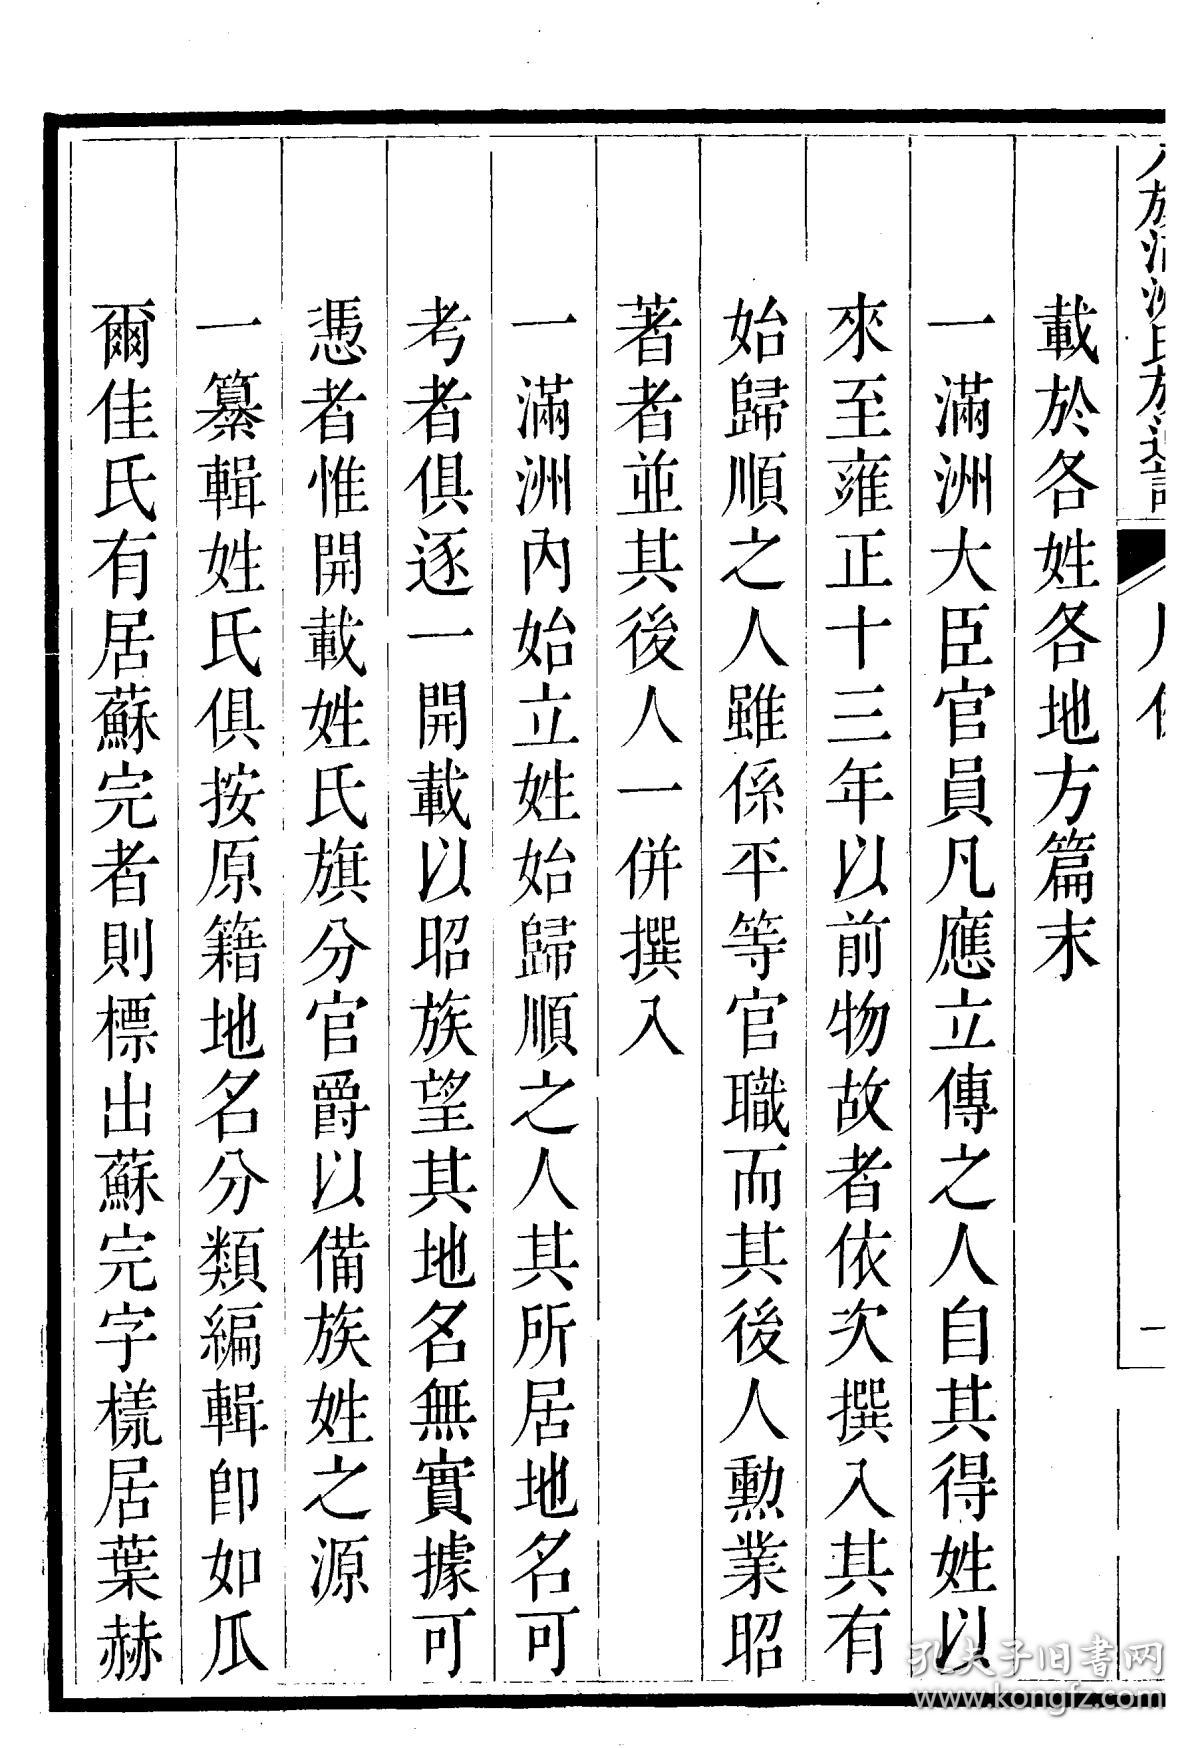 八旗滿洲氏族通譜
凡例
一
載於各姓各地方篇末
一滿洲大臣官員凡應立傳之人自其得姓以
來至雍正十三年以前物故者依次撰入其有
始歸順之人雖係平等官職而其後人勳業昭
著者並其後人一併撰入
一滿洲內始立姓始歸順之人其所居地名可
考者俱逐一開載以昭族望其地名無實據可
憑者惟開載姓氏旗分官爵以備族姓之源
一纂輯姓氏俱按原籍地名分類編輯卽如瓜
爾佳氏有居蘇完者則標出蘇完字樣居葉赫
孔夫子旧书网
www.kongfz.com